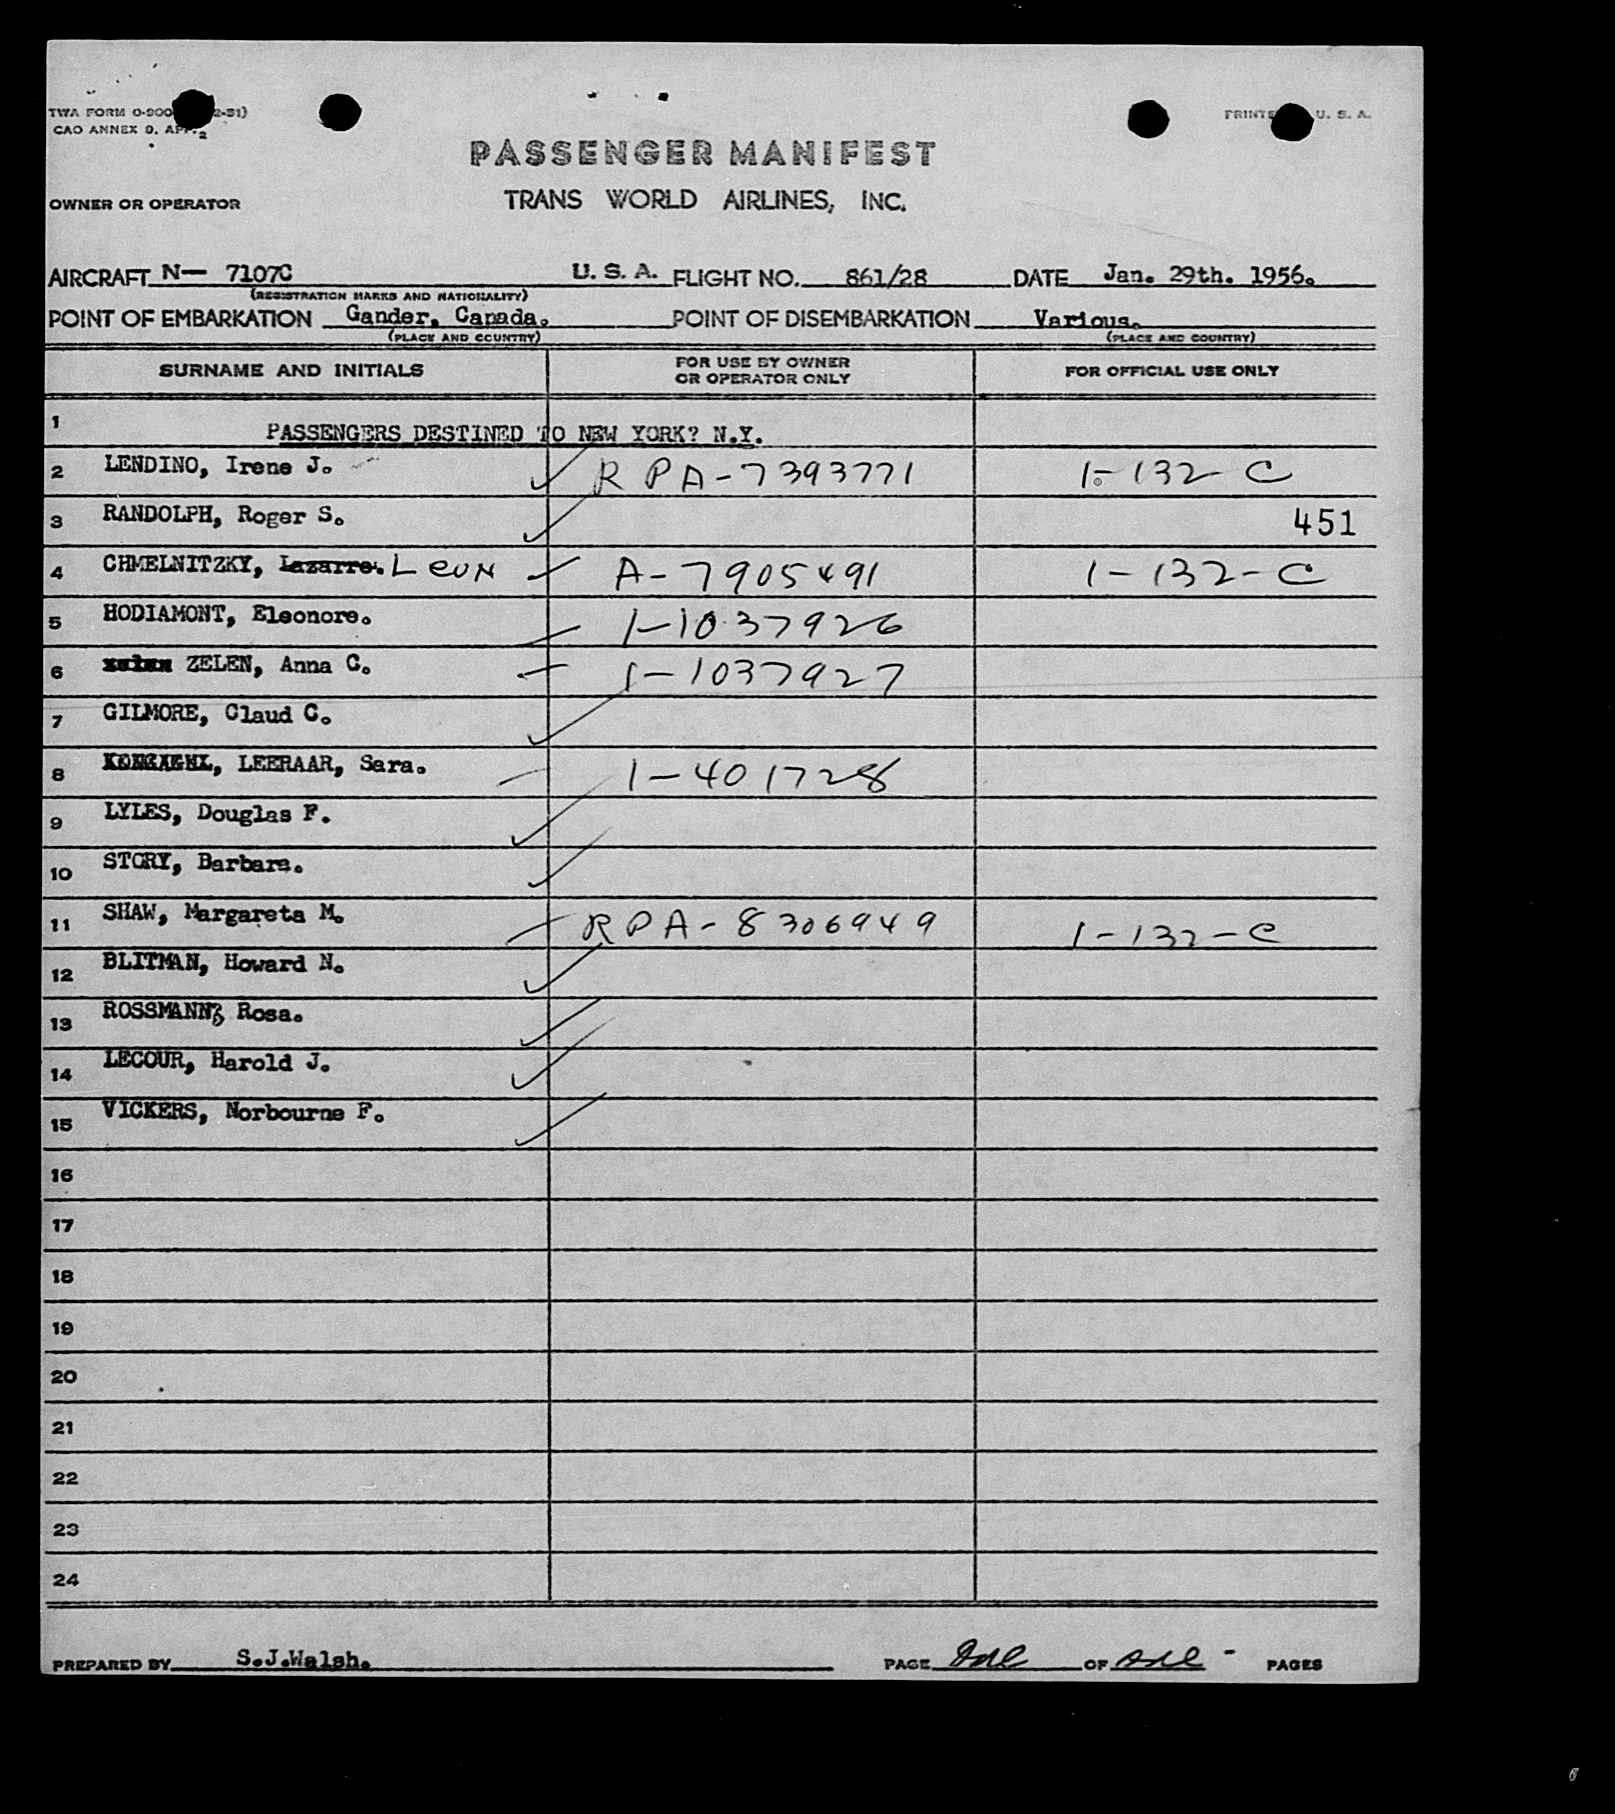 TWA FORM O-900 2-51)
CAO ANNEX 9, APP. 2
PRINTE U. S. A.
PASSENGER MANIFEST
OWNER OR OPERATOR TRANS WORLD AIRLINES, INC.
AIRCRAFT N— 7107C U. S. A. FLIGHT NO. 861/28 DATE Jan. 29th. 1956.
(REGISTRATION MARKS AND NATIONALITY)
POINT OF EMBARKATION Gander, Canada. POINT OF DISEMBARKATION Various.
(PLACE AND COUNTRY) (PLACE AND COUNTRY)
SURNAME AND INITIALS FOR USE BY OWNER OR OPERATOR ONLY FOR OFFICIAL USE ONLY
1 PASSENGERS DESTINED TO NEW YORK? N.Y.
2 LENDINO, Irene J. RPA-7393771 1-132-C
3 RANDOLPH, Roger S. 451
4 CHMELNITZKY, Lazarre. LEON A-7905491 1-132-C
5 HODIAMONT, Eleonore. 1-1037926
6 ZELEN, Anna C. 1-1037927
7 GILMORE, Claud C.
8 LEERAAR, Sara. 1-401728
9 LYLES, Douglas F.
10 STORY, Barbara.
11 SHAW, Margareta M. RPA-8306949 1-132-C
12 BLITMAN, Howard N.
13 ROSSMANN, Rosa.
14 LECOUR, Harold J.
15 VICKERS, Norbourne F.
16
17
18
19
20
21
22
23
24
PREPARED BY S.J.Walsh. PAGE One OF One - PAGES